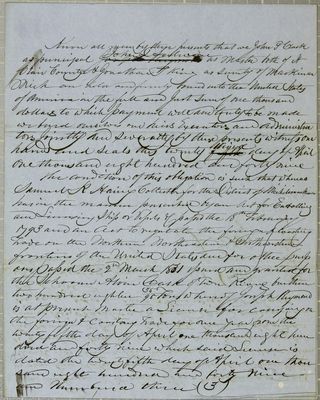 Know all men by these presents that we John F Cask
as principal as Master 10th of St
Clair County & Jonathan F King as surety of Mackinac
Mich are held and firmly bound unto the United States
of America in the full and just sum of one thousand
dollars to which payment well and truly to be made
we bind ourselves our heirs executors and administra
tors jointly and severally by these presents witness our
hands and seals this twenty day of April
one thousand eight hundred and forty nine
The condition of this obligation is such that whereas
Samuel K Haring Collector for the District of Michilimackinac
has in the manner prescribed by an Act for Enrolling
and Licensing Ships or Vessels &c passed the 18 February
1793 and an Act to regulate the foreign and coasting
trade on the Northern Northeastern & Northwestern
frontiers of the United States and for other purp
oses passed the 2 March 1831 issued and granted for
the Schooner burthen
two hundred eighteen Tons
is at present Master a License for carrying on
the foreign & Coasting trade for one year from the
twenty day of April one thousand eight hun
dred and forty nine which said License is
dated the twenty fifth day of April one thou
sand eight hundred and forty nine
and numbered three (3)